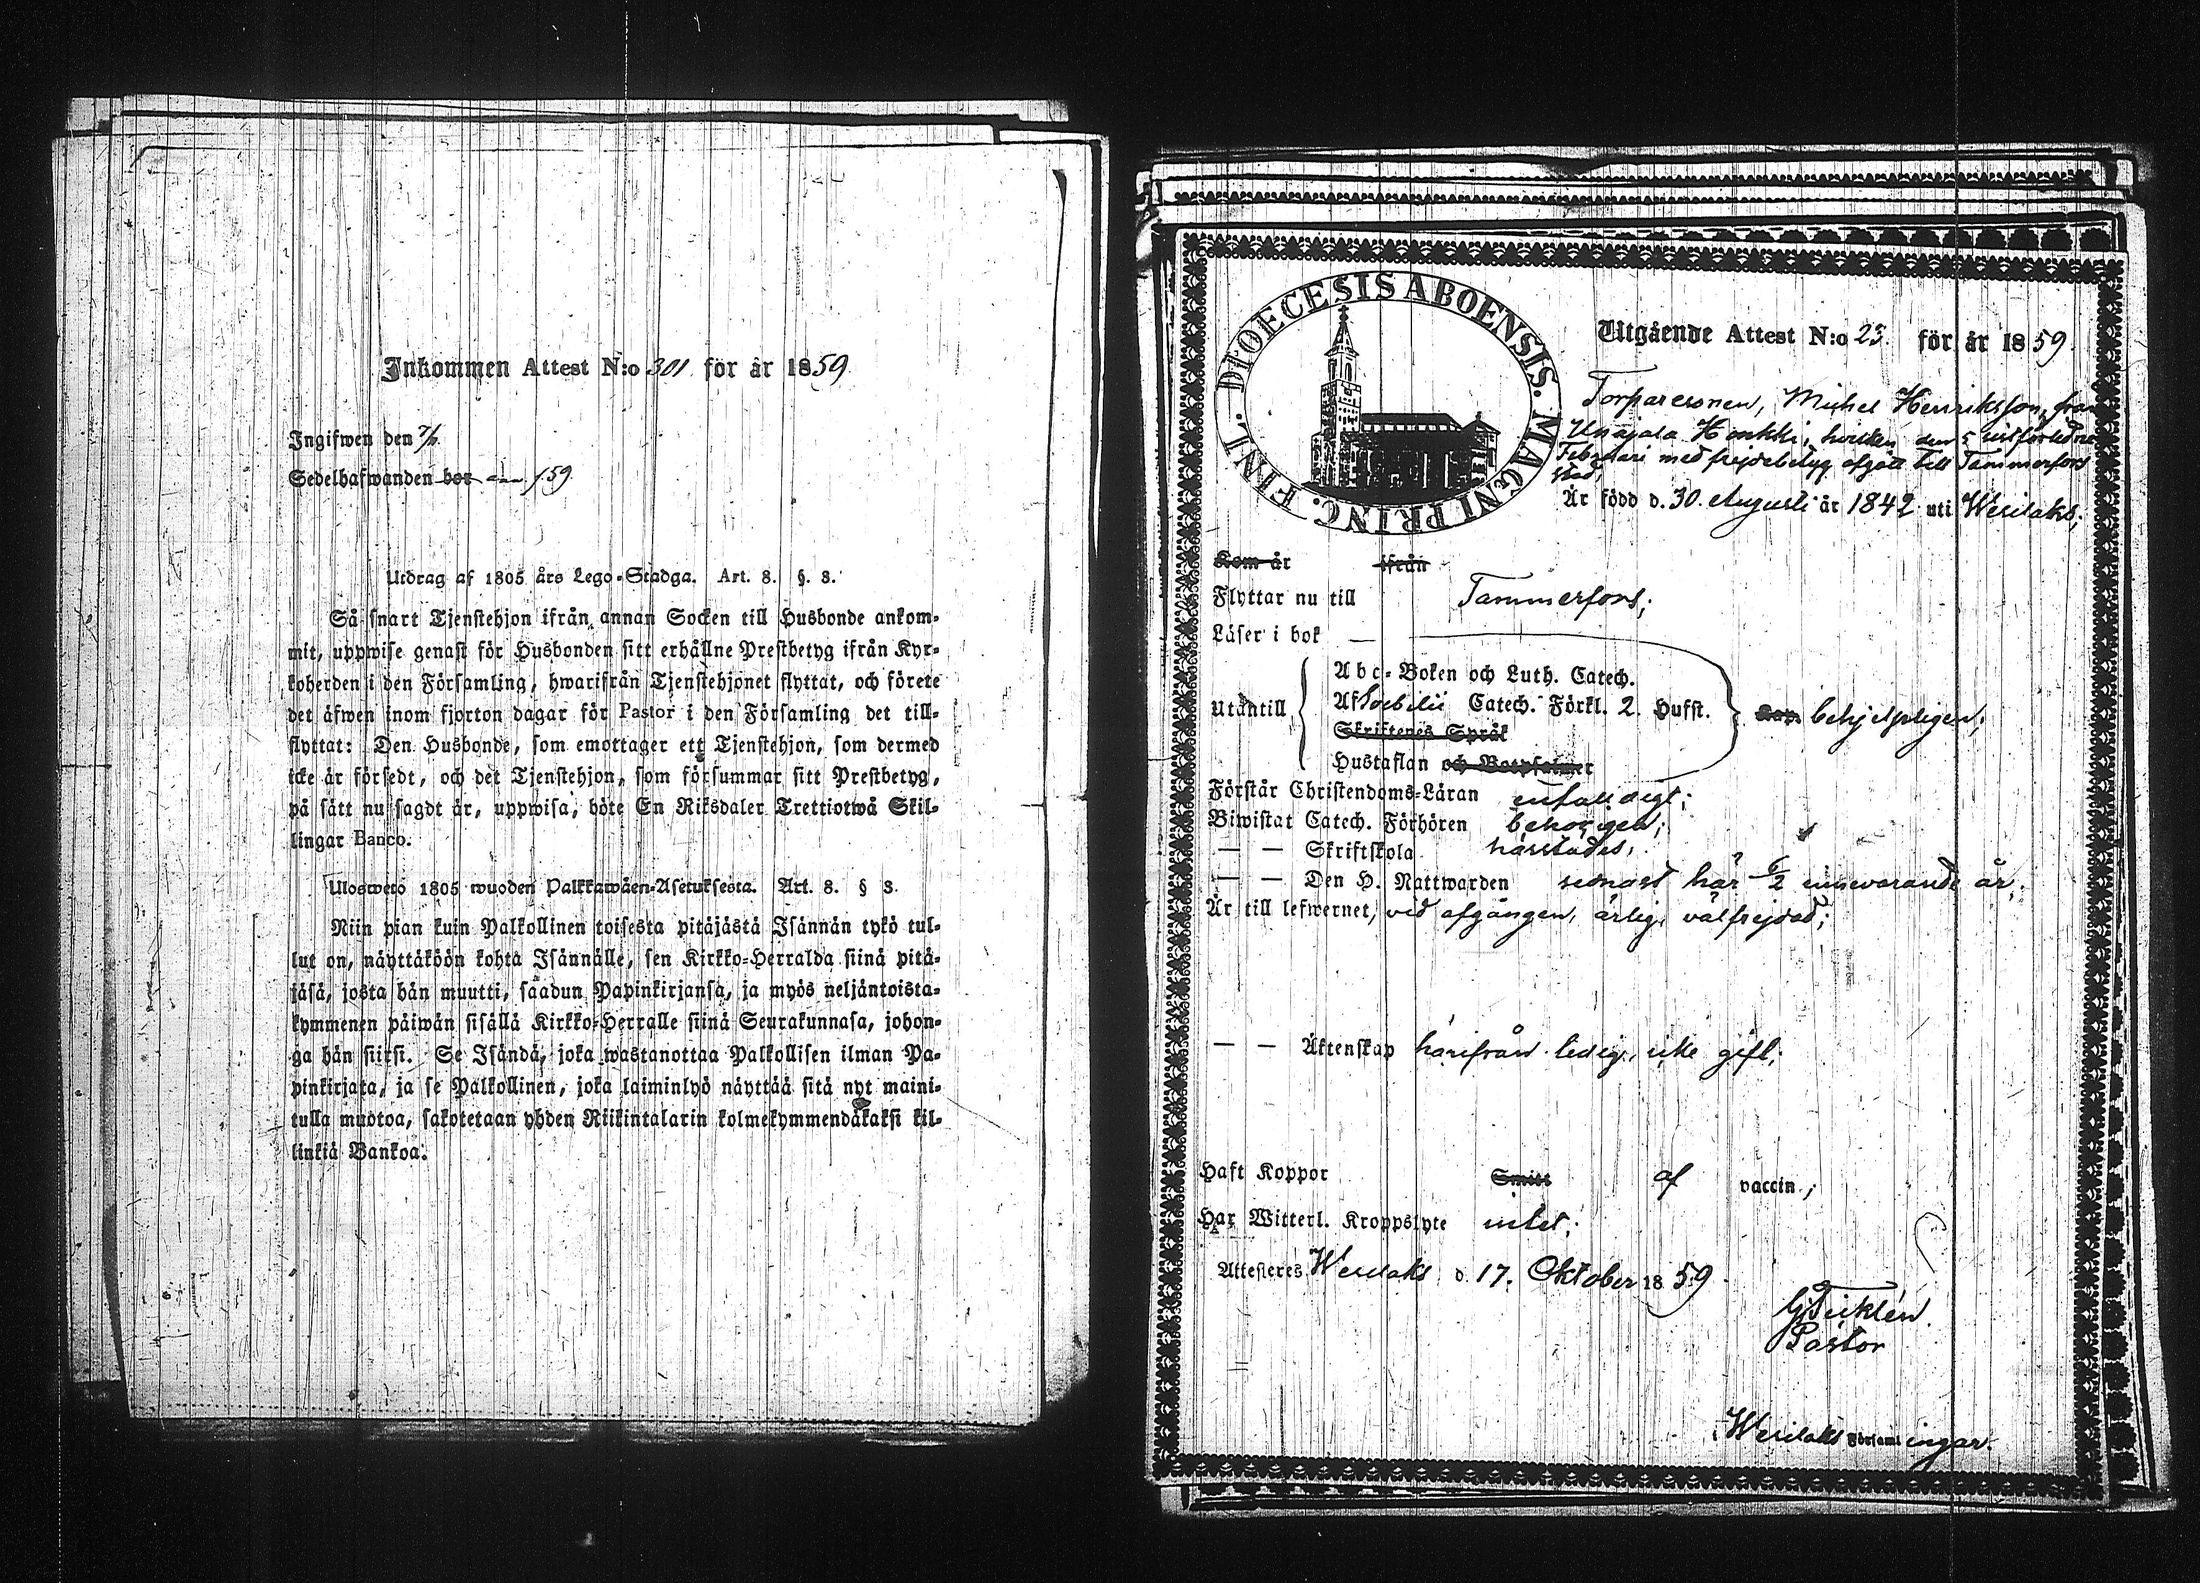 Inkommen Attest N:o 301 för år 1859.
Ingifwen den
Sedelhafwanden bor 159
Utdrag af 1805 års Lego-Stadga. Art. 8. §. 3.
Så snart Tjenstehjon ifrån annan Socken till Husbonde ankom-
mit, uppwise genast för Husbonden sitt erhållne Prestbetyg ifrån Kyr-
koherden i den Församling, hwarifrån Tjenstehjonet flyttat, och förete
det äfwen inom fjorton dagar för Pastor i den Församling det till-
flyttat: Den Husbonde, som emottager ett Tjenstehjon, som dermed
icke är försedt, och det Tjenstehjon, som försummar sitt Prestbetyg,
på sätt nu sagdt är, uppwisa, böte En Riksdaler Trettiotwå Skil-
lingar Banco.
Ulosweto 1805 wuoden Palkkawäen-Asetuksesta. Art. 8. § 3.
Niin pian kuin Palkollinen toisesta pitäjästä Isännän tykö tul-
lut on, näyttäköön kohta Isännälle, sen Kirkko-Herralda siinä pitä-
jäsä, josta hän muutti, saadun Papinkirjansa, ja myös neljäntoista-
kymmenen päiwän sisällä Kirkko-Herralle siinä Seurakunnasa, johon-
ga hän siirsi. Se Isändä, joka wastanottaa Palkollisen ilman Pa-
pinkirjata, ja se Palkollinen, joka laiminlyö näyttää sitä nyt maini-
tulla muotoa, sakotetaan yhden Riikintalarin kolmekymmendäkaksi kil-
linkiä Bankoa.
DIOECESIS ABOENSIS. MAGNI PRINC. FINL.
Utgående Attest N:o 23 för år 1859.
Torparesonen, Michel Henriksson, från
Unajala Honkki, hvilken den 5 sistförledne
Februari med frejdebetyg afgått till Tammerfors
stad,
Är född d. 30. Augusti år 1842 uti Wesilaks;
Kom år ifrån
Flyttar nu till Tammerfors;
Läser i bok —
Utantill
Abc-Boken och Luth. Catech.
Af Sebelii Catech. Förkl. 2. Husst.
Skriftenes Språk
Hustaflan och Botpsalmer
Kap. behjelpligen;
Förstår Christendoms-Läran enfaldigt;
Biwistat Catech. Förhören behörigen;
— — Skriftskola härstädes;
— — Den H. Nattwarden sednast här 6/2 innevarande år;
Är till lefwernet, vid afgången, ärlig, välfrejdad;
— — Äktenskap härifrån ledig, icke gift;
Haft Koppor Smitt af vaccin;
Har Witterl. Kroppslyte intet;
Attesteres Wesilaks d. 17. Oktober 1859.
Pastor
Wesilaks Församlingar.